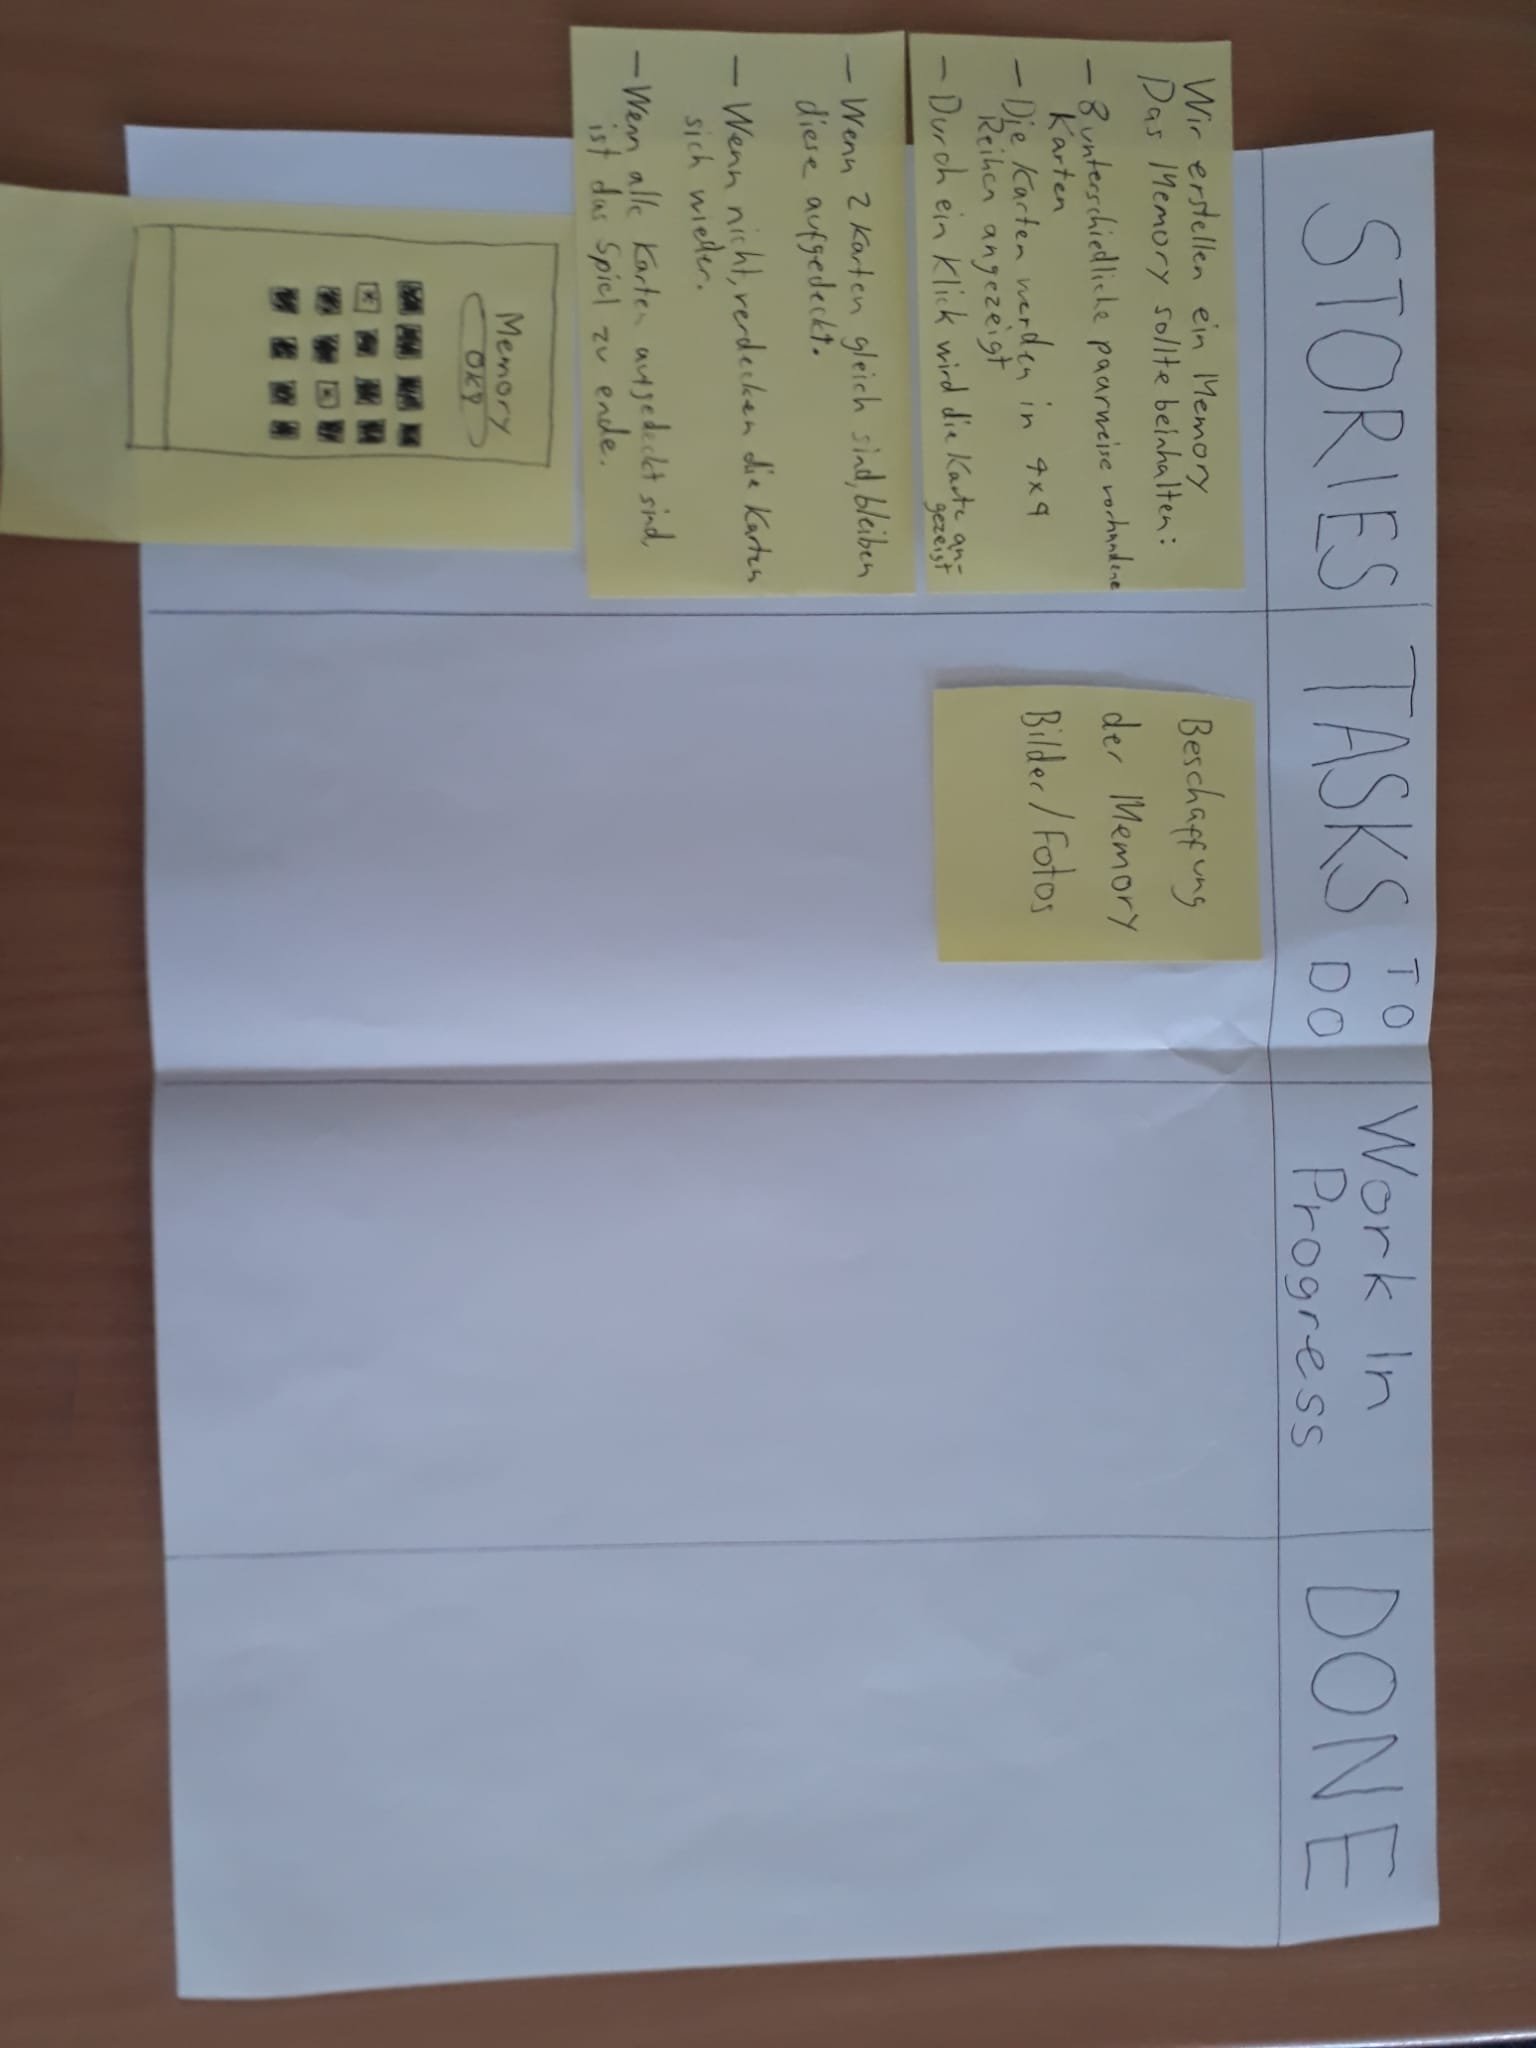 STORIES
TASKS TO DO
Work In Progress
DONE
Wir erstellen ein Memory
Das Memory sollte beinhalten:
– 8 unterschiedliche paarweise vorhandene
Karten
– Die Karten werden in 4x4
Reihen angezeigt
– Durch ein Klick wird die Karte an-
gezeigt
– Wenn 2 Karten gleich sind, bleiben
diese aufgedeckt.
– Wenn nicht, verdecken die Karten
sich wieder.
– Wenn alle Karten aufgedeckt sind,
ist das Spiel zu ende.
Memory
Beschaffung
der Memory
Bilder/Fotos